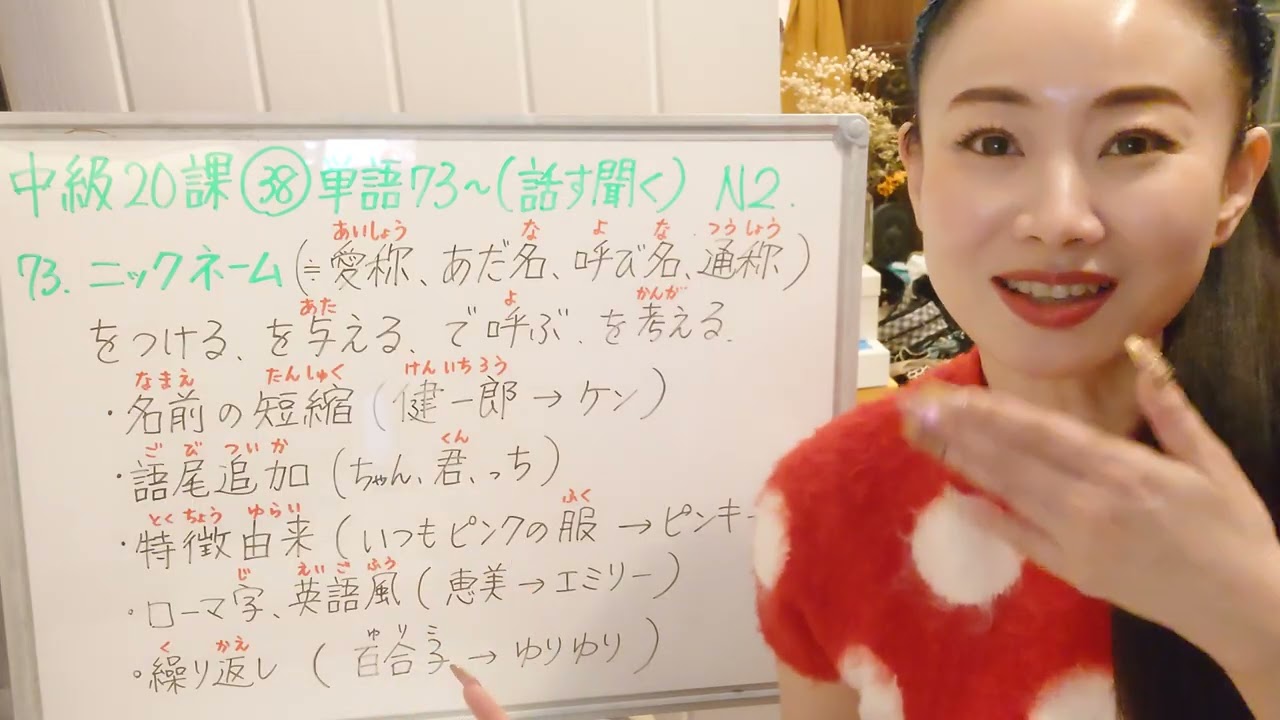 中級20課㊳単語73~(話す聞く) N2.
あいしょう な よ な つうしょう
73. ニックネーム(≒愛称、あだ名、呼び名、通称)
あた よ かんが
をつける、を与える、で呼ぶ、を考える.
なまえ たんしゅく けんいちろう
・名前の短縮(健一郎→ケン)
ごび ついか くん
・語尾追加(ちゃん、君、っち)
とくちょう ゆらい ふく
・特徴由来(いつもピンクの服→ピンキー
じ えいごふう
・ローマ字、英語風(恵美→エミリー)
く かえ ゆりこ
・繰り返し(百合子→ゆりゆり)